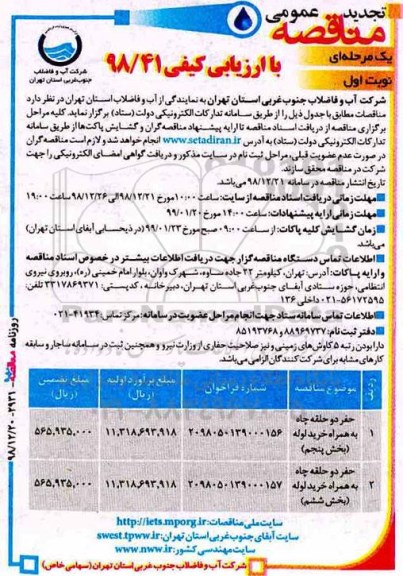 تجدید مناقصه عمومی
یک مرحله‌ای
با ارزیابی کیفی ۹۸/۴۱
نوبت اول
شرکت آب و فاضلاب
جنوب غربی استان تهران
شرکت آب و فاضلاب جنوب غربی استان تهران به نمایندگی از آب و فاضلاب استان تهران در نظر دارد
مناقصات مطابق با جدول ذیل را از طریق سامانه تدارکات الکترونیکی دولت (ستاد) برگزار نماید. کلیه مراحل
برگزاری مناقصه از دریافت اسناد مناقصه تا ارایه پیشنهاد مناقصه‌گران و گشایش پاکت‌ها از طریق سامانه
تدارکات الکترونیکی دولت (ستاد) به آدرس www.setadiran.ir انجام خواهد شد و لازم است مناقصه گران
در صورت عدم عضویت قبلی، مراحل ثبت نام در سایت مذکور و دریافت گواهی امضای الکترونیکی را جهت
شرکت در مناقصه محقق سازند.
تاریخ انتشار مناقصه در سامانه ۹۸/۱۲/۲۱ می‌باشد.
مهلت زمانی دریافت اسناد مناقصه از سایت: ساعت ۱۰:۰۰ مورخ ۹۸/۱۲/۲۱ الی ۹۸/۱۲/۲۶ ساعت ۱۹:۰۰
مهلت زمانی ارایه پیشنهادات: ساعت ۱۴:۰۰ مورخ ۹۹/۰۱/۲۰
زمان گشایش کلیه پاکات: از ساعت ۰۹:۰۰ صبح مورخ ۹۹/۰۱/۲۳ (در ذیحسابی آبفای استان تهران)
می‌باشد
اطلاعات تماس دستگاه مناقصه گزار جهت دریافت اطلاعات بیشتر در خصوص اسناد مناقصه
و ارایه پاکات: آدرس: تهران، کیلومتر ۲۲ جاده ساوه، شهرک واوان، بلوار امام خمینی (ره)، روبروی نیروی
انتظامی، حوزه ستادی آبفای جنوب‌غربی استان تهران، دبیرخانه، کدپستی: ۳۳۱۷۸۶۹۳۷۱ تلفن:
۰۲۱-۵۶۱۷۲۵۹۵ داخلی ۱۳۶
اطلاعات تماس سامانه ستاد جهت انجام مراحل عضویت در سامانه: مرکز تماس: ۴۱۹۳۴-۰۲۱
دفتر ثبت نام: ۸۸۹۶۹۷۳۷ و ۸۵۱۹۳۷۶۸
دارا بودن رتبه ۵ کاوش‌های زمینی و نیز صلاحیت حفاری از وزارت نیرو و همچنین ثبت در سامانه ساجار و سابقه
کارهای مشابه برای شرکت کنندگان الزامی می‌باشد.
ردیف موضوع مناقصه شماره فراخوان مبلغ برآورد اولیه (ریال) مبلغ تضمین (ریال)
۱ حفر دو حلقه چاه به همراه خرید لوله (بخش پنجم) ۲۰۹۸۰۵۰۱۳۹۰۰۰۱۵۶ ۱۱,۳۱۸,۶۹۳,۹۱۸ ۵۶۵,۹۳۵,۰۰۰
۲ حفر دو حلقه چاه به همراه خرید لوله (بخش ششم) ۲۰۹۸۰۵۰۱۳۹۰۰۰۱۵۷ ۱۱,۳۱۸,۶۹۳,۹۱۸ ۵۶۵,۹۳۵,۰۰۰
سایت ملی مناقصات: http://iets.mporg.ir
سایت آبفای جنوب غربی استان تهران: swest.tpww.ir
سایت مهندسی کشور: www.nww.ir
شرکت آب و فاضلاب جنوب غربی استان تهران (سهامی خاص)
روزنامه مناقصه ۲۹۳۱-۹۸/۱۲/۲۰